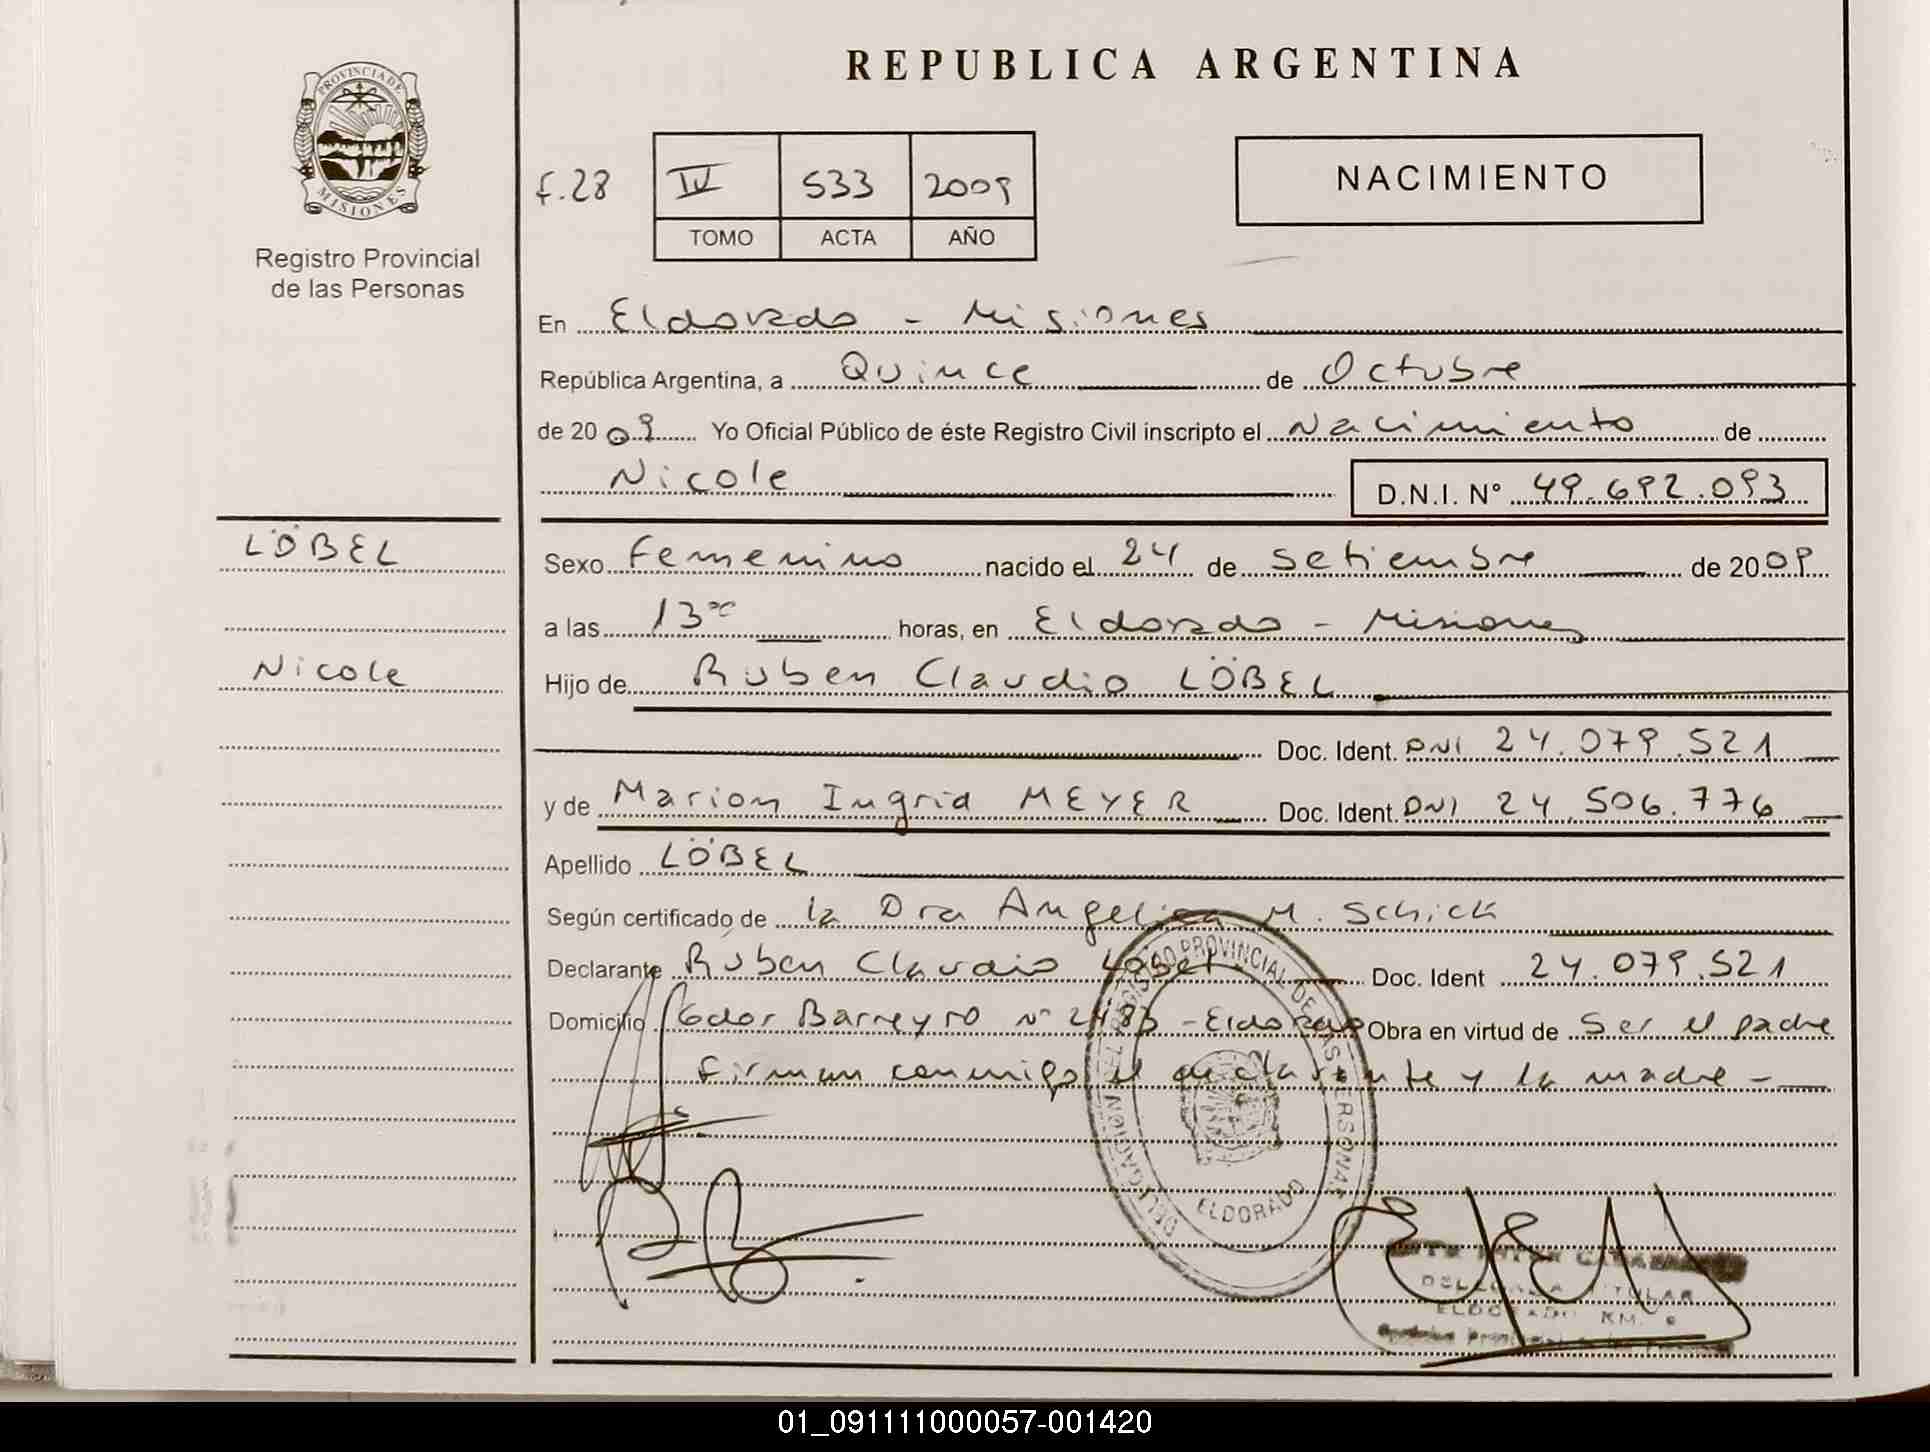 REPUBLICA ARGENTINA
PROVINCIA DE
MISIONES
Registro Provincial
de las Personas
F.28
IV 533 2009
TOMO ACTA AÑO
NACIMIENTO
En Eldorado - Misiones
República Argentina, a Quince de Octubre
de 2009 Yo Oficial Público de éste Registro Civil inscripto el Nacimiento de
Nicole D.N.I. N° 49.692.093
LÖBEL
Nicole
Sexo Femenino nacido el 24 de Setiembre de 2009
a las 13 horas, en Eldorado - Misiones
Hijo de Ruben Claudio LÖBEL
Doc. Ident. DNI 24.079.521
y de Marion Ingrid MEYER Doc. Ident. DNI 24.506.776
Apellido LÖBEL
Según certificado de la Dra Angelica M. Schick
Declarante Rúben Claudio Löbel Doc. Ident 24.079.521
Domicilio Gdor Barreyro N° 2483 - Eldorado Obra en virtud de ser el padre
Firman conmigo el declarante y la madre -
REGISTRO PROVINCIAL DE LAS PERSONAS
ELDORADO
TITULAR
KM. 9
01_091111000057-001420